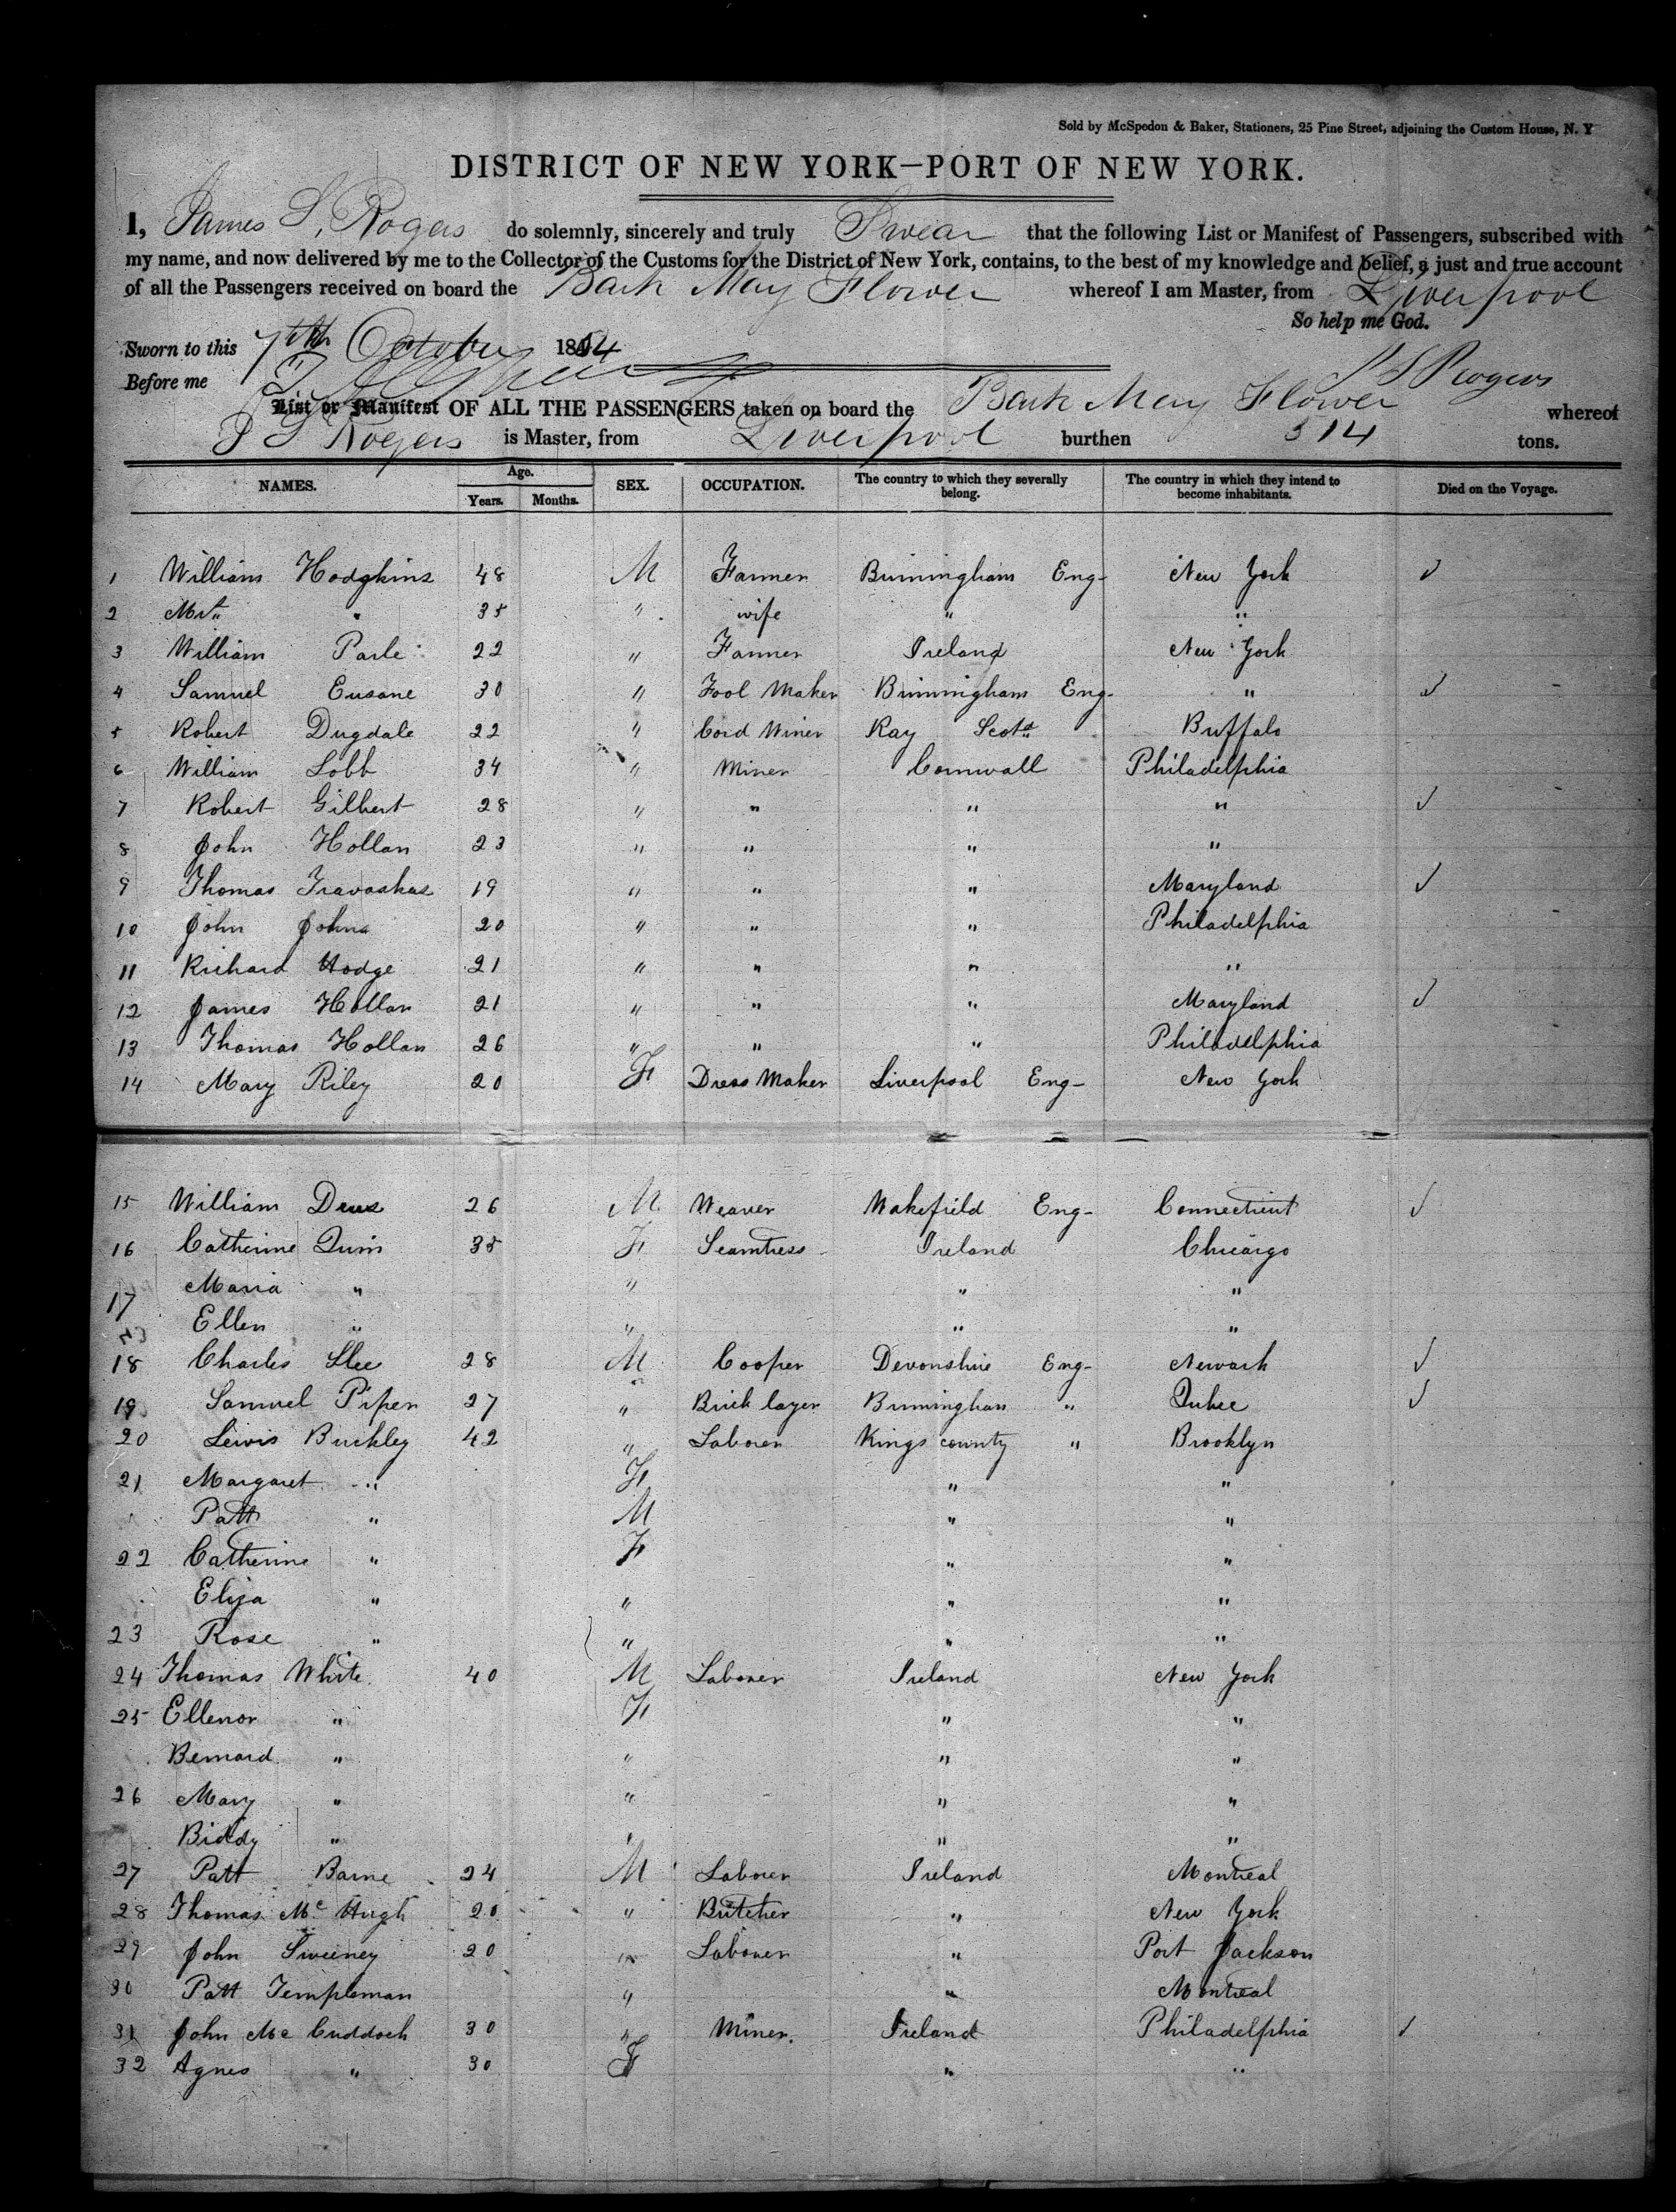 Sold by McSpedon & Baker, Stationers, 25 Pine Street, adjoining the Custom House, N. Y
DISTRICT OF NEW YORK—PORT OF NEW YORK.
I, James S, Rogers do solemnly, sincerely and truly Swear that the following List or Manifest of Passengers, subscribed with
my name, and now delivered by me to the Collector of the Customs for the District of New York, contains, to the best of my knowledge and belief, a just and true account
of all the Passengers received on board the Bark May Flower whereof I am Master, from Liverpool
So help me God.
Sworn to this 7th October 184
Before me J S Rogers
List or Manifest OF ALL THE PASSENGERS taken on board the Bark May Flower whereof
J S Rogers is Master, from Liverpool burthen 514 tons.
NAMES. Age. Years. Months. SEX. OCCUPATION. The country to which they severally belong. The country in which they intend to become inhabitants. Died on the Voyage.
1 William Hodgkins 48 M Farmer Birmingham Eng- New York ✓
2 Mrs " 35 " wife " "
3 William Parle 22 " Farmer Ireland New York
4 Samuel Eusane 30 " Tool Maker Birmingham Eng- " ✓
5 Robert Dugdale 22 " Cord Winer Ray Scotd Buffalo
6 William Lobb 34 " Miner Cornwall Philadelphia
7 Robert Gilbert 28 " " " " ✓
8 John Hollan 23 " " " "
9 Thomas Travaskas 19 " " " Maryland ✓
10 John Johns 20 " " " Philadelphia
11 Richard Hodge 21 " " " "
12 James Hollan 21 " " " Maryland ✓
13 Thomas Hollan 26 " " " Philadelphia
14 Mary Riley 20 F Dress Maker Liverpool Eng- New York
15 William Dews 26 M Weaver Wakefield Eng- Connecticut ✓
16 Catherine Quin 35 F Seamtress Ireland Chicargo
17 Maria " " " "
Ellen " " " "
18 Charles Slee 28 M Cooper Devonshire Eng- Newark ✓
19 Samuel Piper 27 " Brick layer Birmingham " Qubec ✓
20 Lewis Buckley 42 " Laborer Kings county " Brooklyn
21 Margaret " F " "
Patt " M " "
22 Catherine " F " "
Eliza " " " "
23 Rose " " " "
24 Thomas White 40 M Laborer Ireland New York
25 Ellenor " F " "
Bernard " " " "
26 Mary " " " "
Biddy " " " "
27 Patt Barne 24 M Laborer Ireland Montreal
28 Thomas Mc Hugh 20 " Butcher " New York
29 John Sweeney 20 " Laborer " Port Jackson
30 Patt Templeman " " Montreal
31 John Mc Cuddock 30 " Miner. Ireland Philadelphia ✓
32 Agnes " 30 F " "